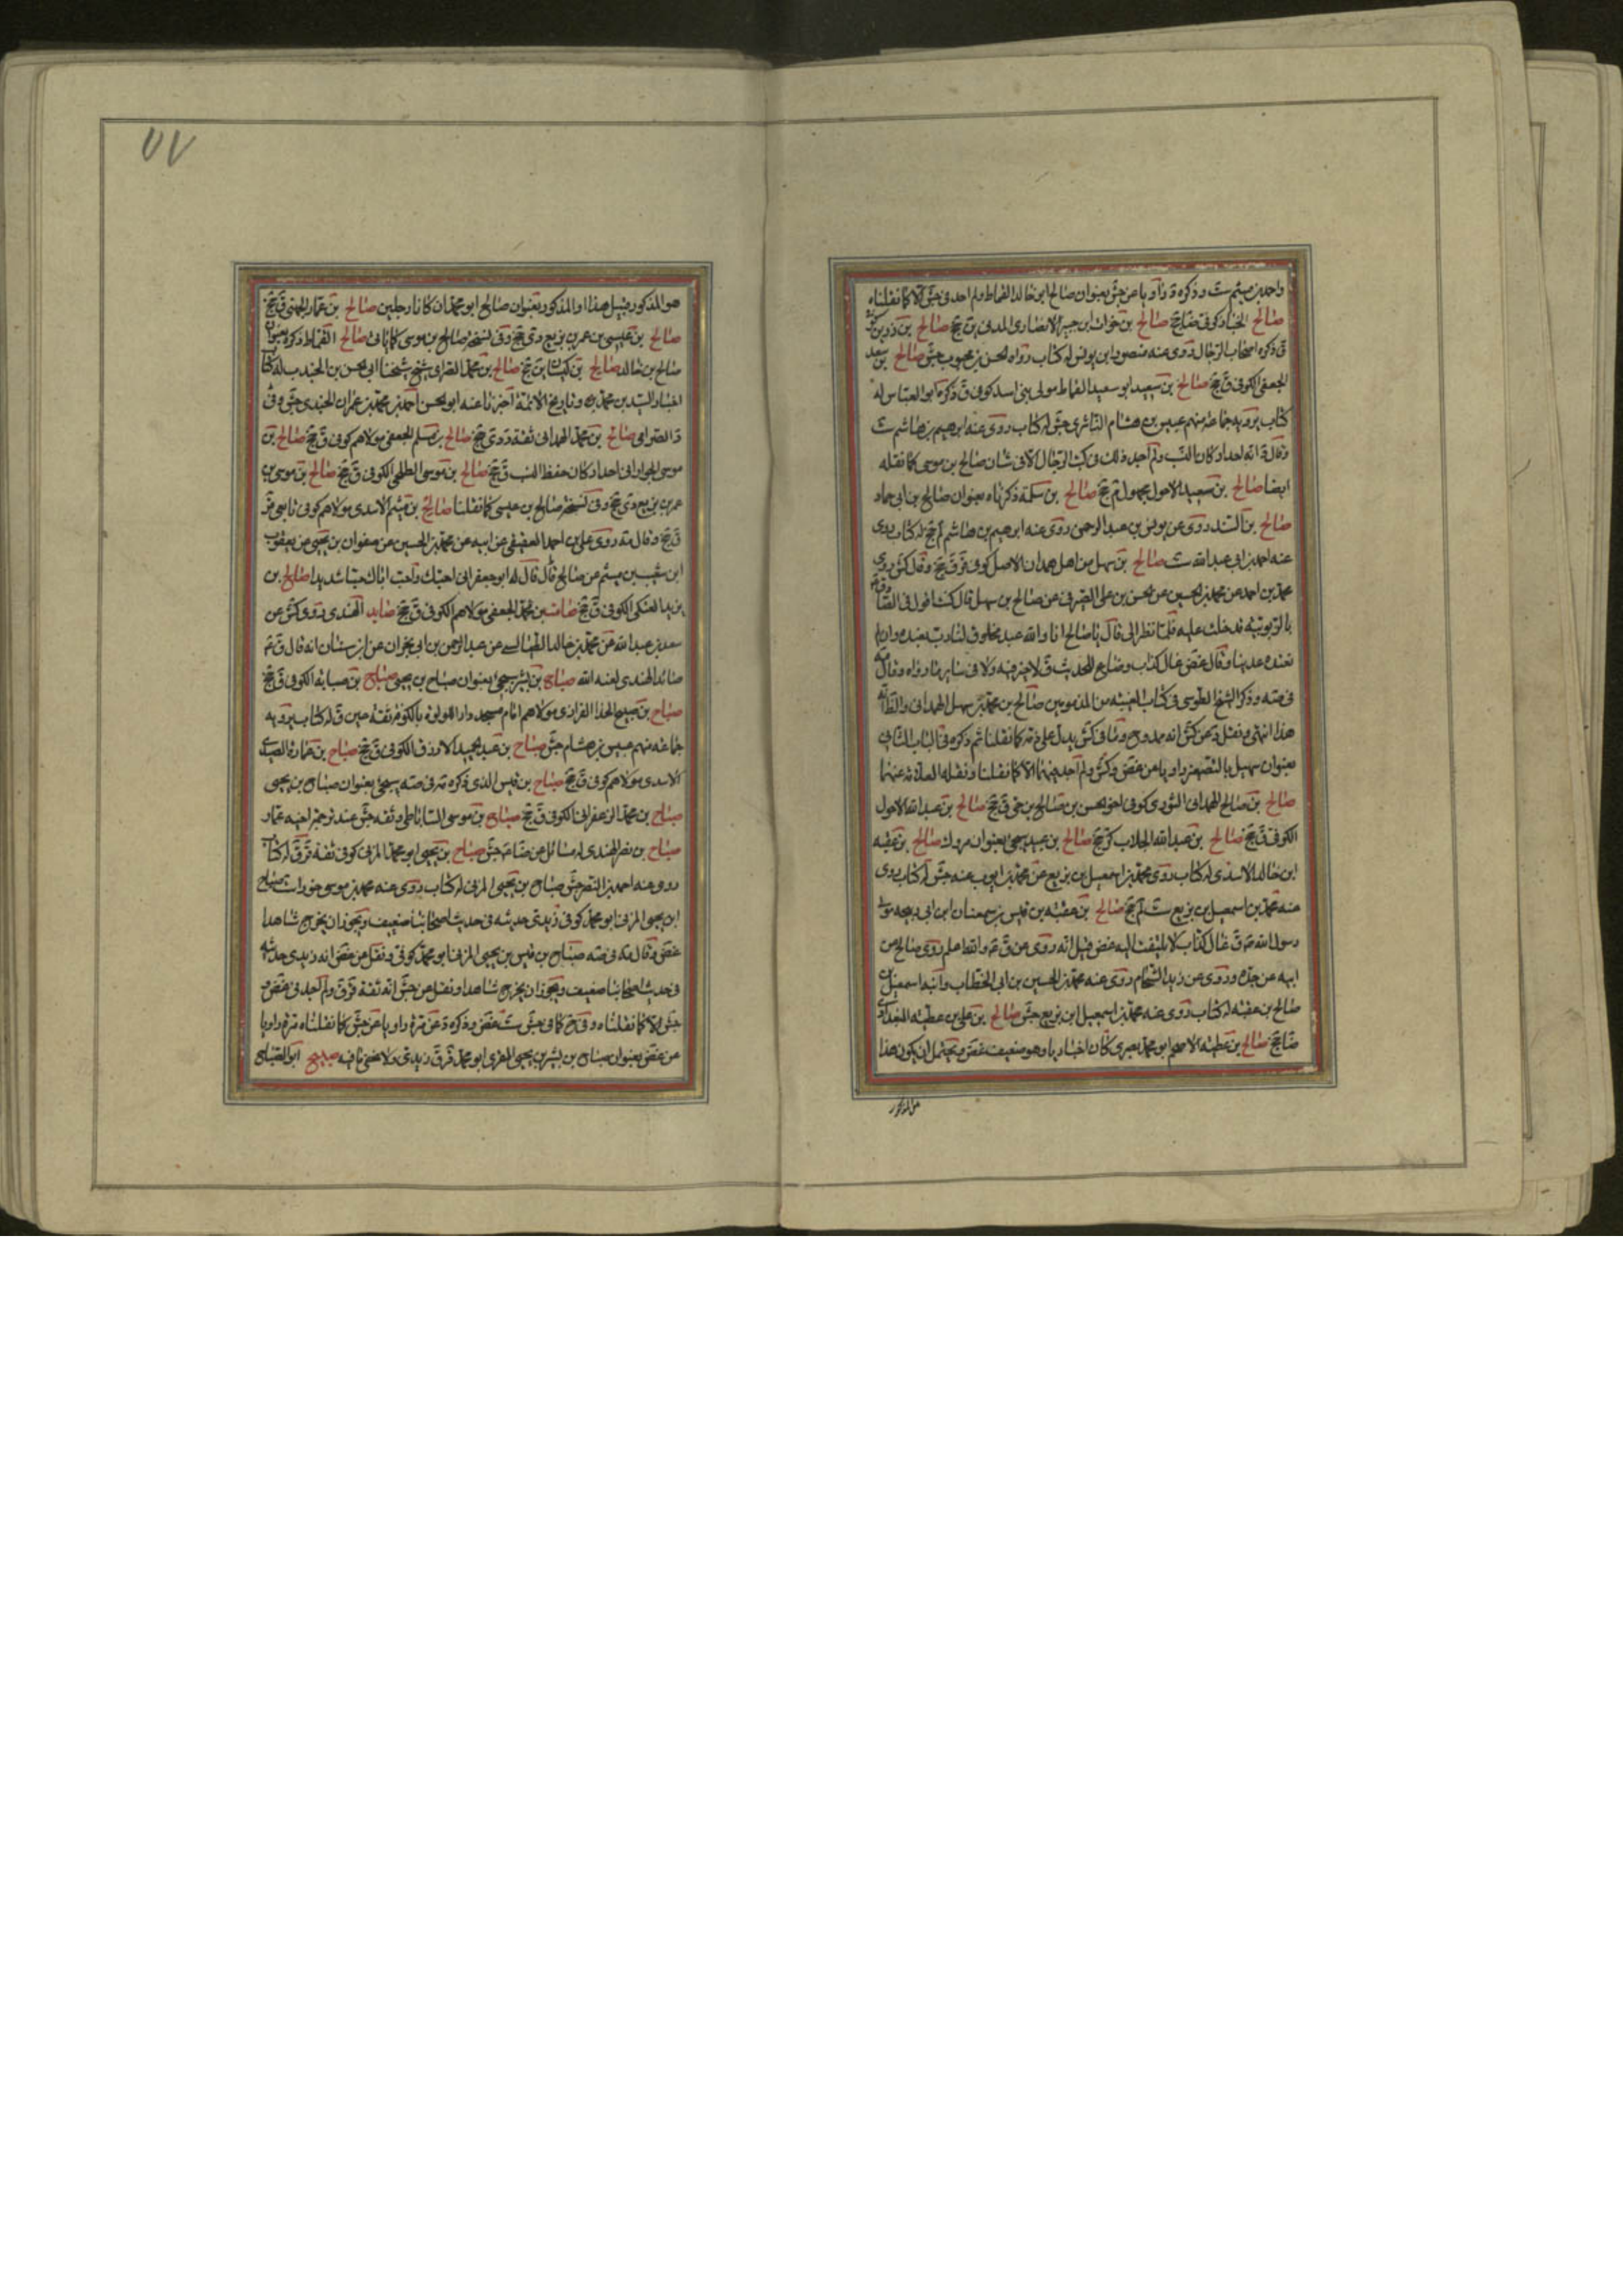 واحمد بن ميثم ست وذكره د راويا عن جش بعنوان صالح ابن خالد القماط ولم اجد في جش الا كما نقلناه
صالح الخباز كوفي صالح بن خوات ابن جبير الانصاري المدني ين جخ صالح بن
ق ذكره اصحاب الرجال روى عنه منصور ابن يونس له كتاب رواه الحسن بن محبوب جش صالح بن سعد
الجعفي الكوفي ق جخ صالح بن سعيد ابو سعيد القماط مولى بني اسد كوفي ق ذكره ابو العباس له
كتاب يرويه جماعة منهم عبيس بن هشام الناشري جش له كتاب روى عنه ابرهيم بن هاشم ست
ولم اجد ذلك في كتب الرجال الا في شان صالح بن موسى كما نقله
ايضا صالح بن سعيد الاحول مجهول جخ صالح بن سلمة ذكرناه بعنوان صالح بن ابي حماد
صالح بن السندي روى عن يونس بن عبد الرحمن روى عنه ابرهيم بن هاشم لم جخ له كتاب روى
عنه احمد بن ابي عبد الله ست صالح بن سهل من اهل همدان الاصل كوفي قر ق جخ وقال كش روى
محمد بن احمد عن محمد بن الحسين عن الحسن بن علي الصيرفي عن صالح بن سهل قال كنت اقول في الصادق
بالربوبية فدخلت عليه فلما نظر الي قال يا صالح انا والله عبد مخلوق لنا رب نعبده وان لم
نعبده عذبنا وقال غض غال كذاب وضاع للحديث لا خير فيه ولا في ساير ما رواه وقال
في صه وذكر الشيخ الطوسي في كتاب الغيبة من المذمومين صالح بن محمد بن سهل الهمداني والظاهر انه
هذا انتهى ونقل د عن كش انه ممدوح وما في كش يدل على ذمه كما نقلنا ثم ذكره في الباب الثاني
بعنوان سهيل بالتصغير راويا عن غض وكش ولم اجد فيهما الا كما نقلنا ونقله العلامة عنهما
صالح بن صالح الهمداني الثوري كوفي اخو الحسن بن صالح بن حي ق جخ صالح بن عبد الله الاحول
الكوفي ق جخ صالح بن عبد الله الجلاب كر جخ صالح بن عبيد سيجئ بعنوان مروك صالح بن عقبة
ابن خالد الاسدي له كتاب روى محمد بن اسمعيل بن بزيع عن محمد بن ايوب عنه جش له كتاب روى
عنه محمد بن اسمعيل بن بزيع ست لم جخ صالح بن عقبة بن قيس بن سمعان ابن ابي ربيحة مولى
رسول الله ص ق غال كذاب لا يلتفت اليه غض قيل انه روى عن ق ع والله اعلم روى صالح عن
ابيه عن جده وروى عن زيد الشحام روى عنه محمد بن الحسين بن ابي الخطاب وابنه اسمعيل بن
صالح بن عقبة له كتاب روى عنه محمد بن اسمعيل ابن بزيع جش صالح بن علي بن عطية البغدادي
ضا جخ صالح بن عطية الاضخم ابو محمد بصري كان اخباريا وهو ضعيف غض ويحتمل ان يكون هذا
هو المذكور
٥٧
هو المذكور قبيل هذا او المذكور بعنوان صالح ابو محمد ان كانا رجلين صالح بن عمار الجهني ق جخ
صالح بن عيسى بن عمر بن بزيع دى جخ وفي نسخة صالح بن موسى كما ياتي صالح القماط ذكره بعنوان
صالح بن خالد صالح بن كيسان ين جخ صالح بن محمد الصراي شيخ شيخنا ابي الحسن بن الجندي له كتاب
اخبار السيد بن محمد وتاريخ الائمة اخبرنا عنه ابو الحسن احمد بن محمد بن عمران الجندي جش وفي
د الصرامي صالح بن محمد الهمداني ثقة د دى جخ صالح بن مسلم الجعفي مولاهم كوفي ق جخ صالح بن
موسى الجواربي احد اركان حفظ النسب ق جخ صالح بن موسى الطلحي الكوفي ق جخ صالح بن موسى بن
عمر بن بزيع دى جخ وفي نسخة صالح بن عيسى كما نقلنا صالح بن ميثم الاسدي مولاهم كوفي تابعي قر
ق جخ وقال مة روى علي بن احمد العقيقي عن ابيه عن محمد بن الحسين عن صفوان بن يحيى عن يعقوب
ابن شعيب بن ميثم عن صالح قال قال له ابو جعفر اني احبك واحب اباك حبا شديدا صالح بن
يزيد العتكي الكوفي ق جخ صامت بن محمد الجعفي مولاهم الكوفي ق جخ صايد الهندي روى كش عن
سعد بن عبد الله عن محمد بن خالد الطيالسي عن عبد الرحمن بن ابي نجران عن ابن سنان انه قال ق ع
صائد الهندي لعنه الله صباح بن بشر سيجئ بعنوان صباح بن يحيى صباح بن سيابة الكوفي ق جخ
صباح بن صبيح الحذا الفزاري مولاهم امام مسجد دار اللؤلؤة بالكوفة ثقة عين ق له كتاب يرويه
جماعة منهم عبيس بن هشام جش صباح بن عبد الحميد الازرق الكوفي ق جخ صباح بن عمارة الصيدا
الاسدي مولاهم كوفي ق جخ صباح بن قيس الذي ذكره في صه سيجئ بعنوان صباح بن يحيى
صباح بن محمد الزعفراني الكوفي ق جخ صباح بن موسى الساباطي وثقه جش عند ترجمة اخيه عمار
صباح بن نصر الهندي له مسائل عن ضا ع جش صباح بن يحيى ابو محمد المزني كوفي ثقة قر ق له كتاب
روى عنه احمد بن النضر جش صباح بن يحيى المزني له كتاب روى عنه محمد بن موسى خوراء ست صباح
ابن يحيى المزني ابو محمد كوفي زيدي حديثه في حديث اصحابنا ضعيف ويجوز ان يخرج شاهدا
غض وقال في صه صباح بن قيس بن يحيى المزني ابو محمد كوفي ونقل عن غض انه زيدي حديثه
في حديث اصحابنا ضعيف ويجوز ان يخرج شاهدا ونقل عن جش انه ثقة قر ق ولم اجد في غض و
جش الا كما نقلناه وفي كما في جش ست غض وذكره د عن مرة راويا عن جش كما نقلناه مرة راويا
عن غض بعنوان صباح بن بشير بن يحيى المقري ابو محمد قر ق زيدي ولا يخفى ما فيه صبيح ابو الصباح